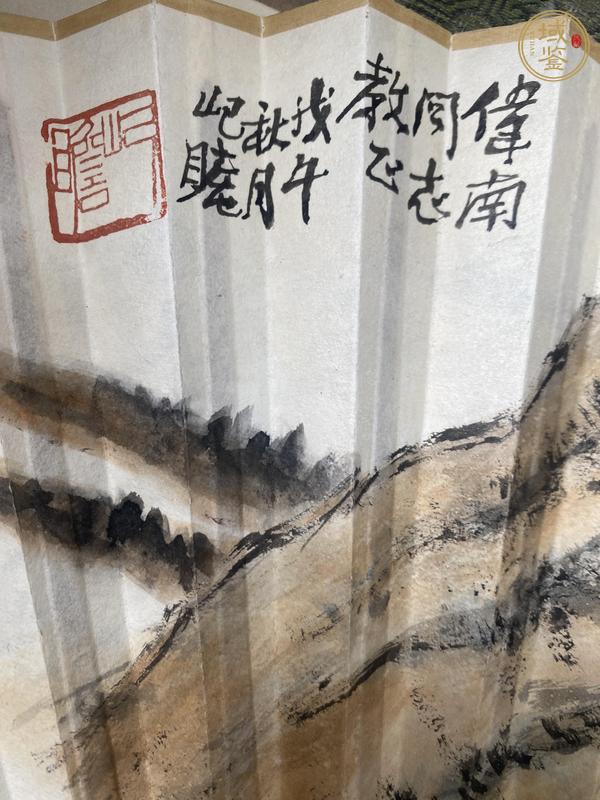 偉南
同志
教正
戊午
秋月
屺瞻
屺瞻
域鉴